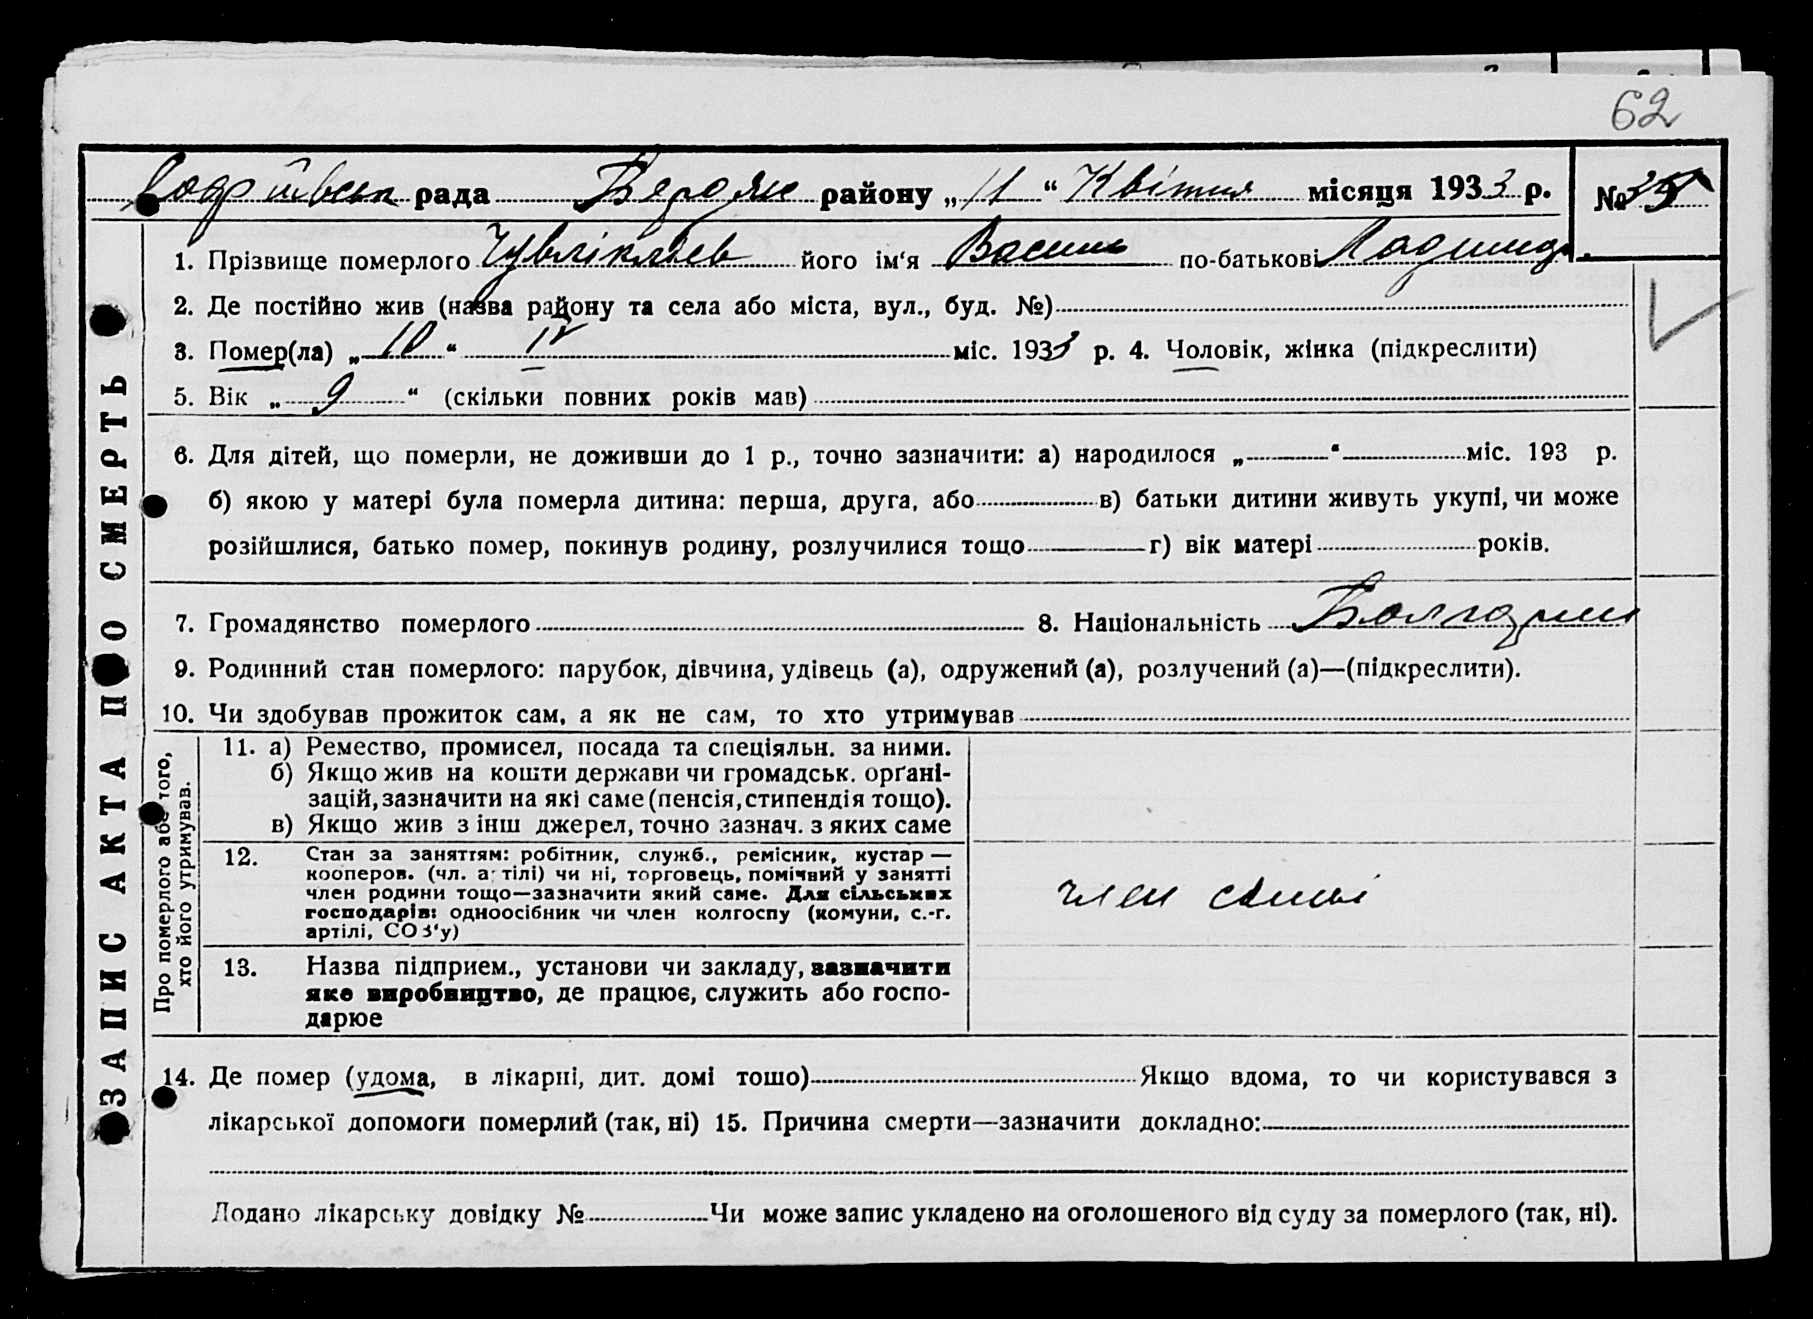 62
Софіївськ рада Бердян району „11“ Квітня місяця 1933 р. №35
1. Прізвище померлого його ім‘я Василь по-батькові
2. Де постійно жив (назва району та села або міста, вул., буд. №)
3. Помер(ла) „10“ IV міс. 1933 р. 4. Чоловік, жінка (підкреслити)
5. Вік „9“ (скільки повних років мав)
6. Для дітей, що померли, не доживши до 1 р., точно зазначити: а) народилося „ “ міс. 193 р.
б) якою у матері була померла дитина: перша, друга, або в) батьки дитини живуть укупі, чи може
розійшлися, батько помер, покинув родину, розлучилися тощо г) вік матері років.
7. Громадянство померлого 8. Національність Болгарин
9. Родинний стан померлого: парубок, дівчина, удівець (а), одружений (а), розлучений (а)—(підкреслити).
10. Чи здобував прожиток сам, а як не сам, то хто утримував
Про померлого або того,
хто його утримував.
11. а) Ремество, промисел, посада та спеціяльн. за ними.
б) Якщо жив на кошти держави чи громадськ. орґані-
зацій, зазначити на які саме (пенсія, стипендія тощо).
в) Якщо жив з інш джерел, точно зазнач. з яких саме
12. Стан за заняттям: робітник, служб., ремісник, кустар —
кооперов. (чл. артілі) чи ні, торговець, помічний у занятті
член родини тощо—зазначити який саме. Для сільських
господарів: одноосібник чи член колгоспу (комуни, с.-г.
артілі, СОЗ‘у)
член сімьі
13. Назва підприєм., установи чи закладу, зазначити
яке виробництво, де працює, служить або госпо-
дарює
14. Де помер (удома, в лікарні, дит. домі тошо) Якщо вдома, то чи користувався з
лікарської допомоги померлий (так, ні) 15. Причина смерти—зазначити докладно:
Додано лікарську довідку № Чи може запис укладено на оголошеного від суду за померлого (так, ні).
ЗАПИС АКТА ПРО СМЕРТЬ